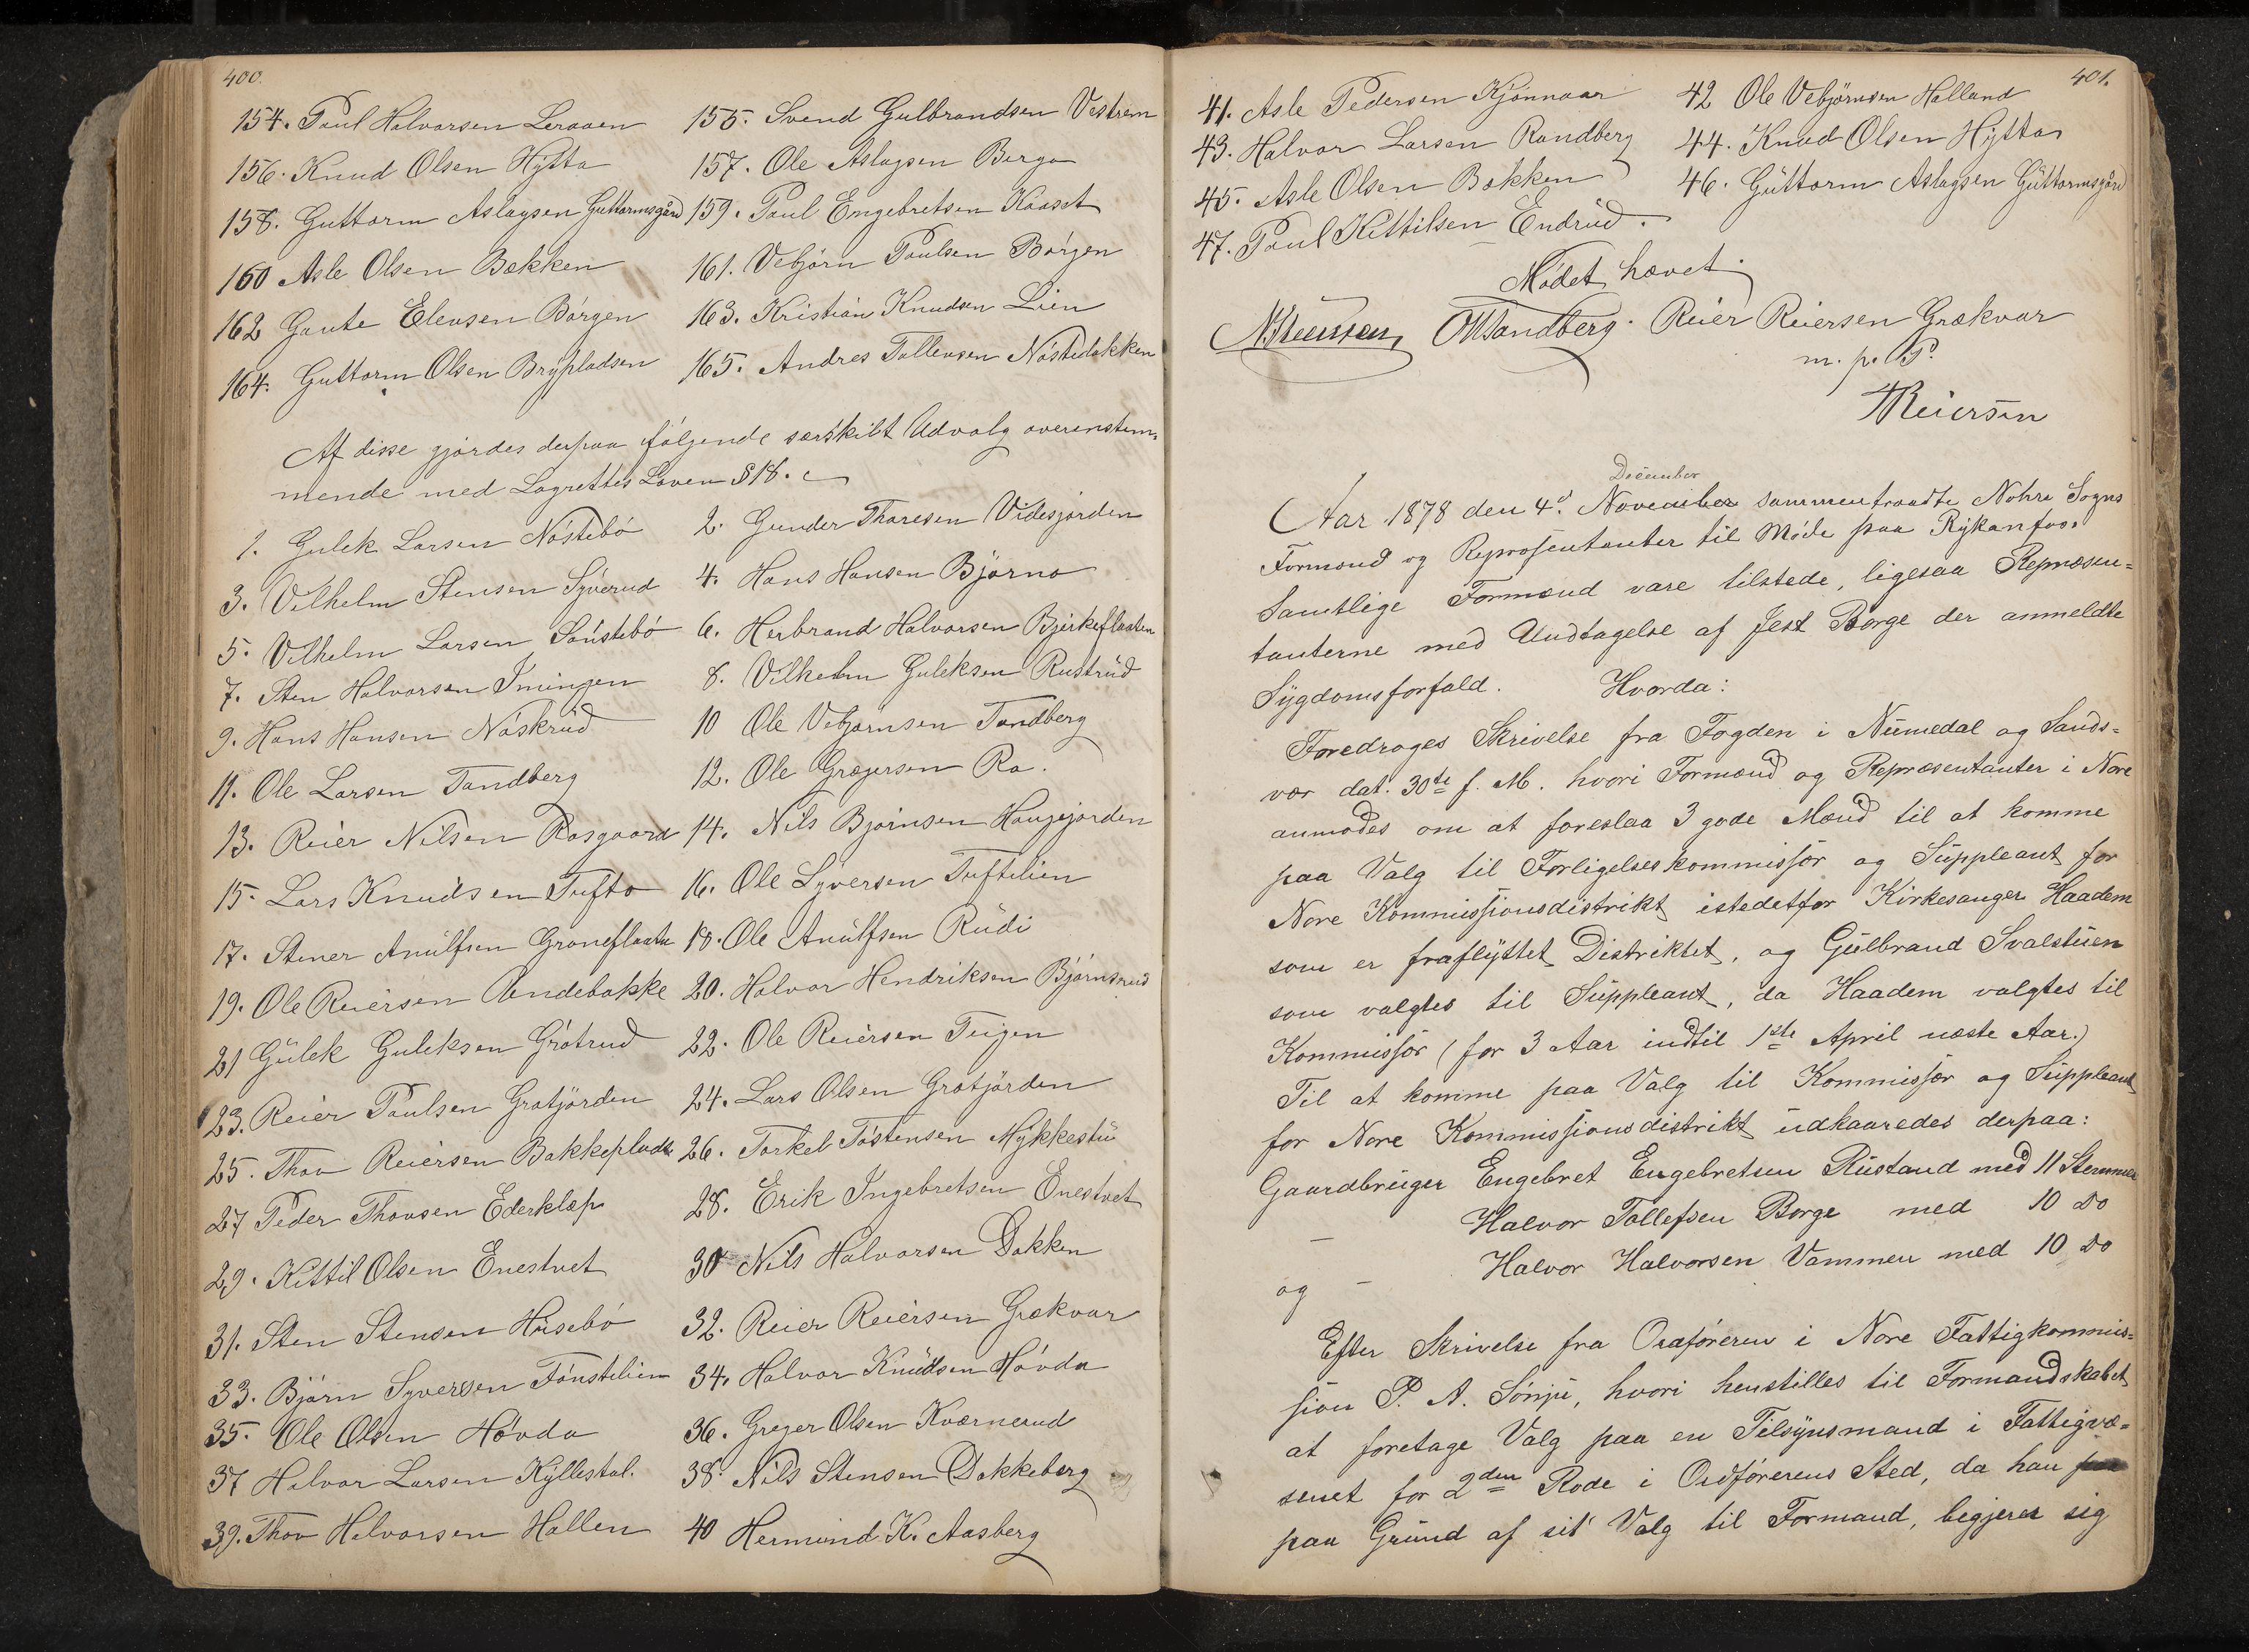 400.
154. Paul Halvorsen Leraaen 155. Svend Gulbrandsen Vestrem
156. Knud Olsen Hÿtta 157. Ole Aslagsen Berga
158. Guttorm Aslagsen Guttormsgård 159. Paul Engebretsen Kaaset
160 Asle Olsen Bekken 161. Vebjörn Poulsen Börgen
162 Gaute Elevsen Börgen 163. Kristian Knudsen Lien
164. Guttorm Olsen Brÿpladsen 165. Andres Tollevsen Nöstedokken
Af disse gjördes derpaa fölgende særskilt Udvalg overenstem-
mende med Lagrettes Loven § 18.
1. Gulek Larsen Nöstebö 2. Gunder Thoresen Videsjorden
3. Vilhelm Stensen Sÿverud 4. Hans Hansen Björno
5. Vilhelm Larsen Sönstebö 6. Herbrand Halvorsen Bjerkeflaaten
7. Sten Halvorsen Imingen 8. Vilhelm Guleksen Rustrud
9. Hans Hansen Nöskrud 10 Ole Vebjörnsen Tandberg
11. Ole Larsen Tandberg 12. Ole Gregersen Ra.
13. Reier Nilsen Rosgaard 14. Nils Bjørnsen Haugejorden
15. Lars Knudsen Tufto 16. Ole Syversen Tuftelien
17. Stener Anulfsen Groneflaate 18. Ole Anulfsen Rudi
19. Ole Reiersen Aandebakke 20. Halvor Hendriksen Björnsrud
21 Gulek Guleksen Grötrud 22. Ole Reiersen Teigen
23. Reier Paulsen Grotjorden 24. Lars Olsen Grotjorden
25. Thov Reiersen Bakkeplads 26. Torkel Tostensen Mÿkkestu
27 Peder Thovsen Ederklep 28. Erik Ingebretsen Enestvet
29. Kittil Olsen Enestvet 30 Nils Halvorsen Dokken
31. Sten Stensen Husebö 32. Reier Reiersen Grækvar
33. Björn Syversen Fönstelien 34. Halvor Knudsen Hövda
35. Ole Olsen Hövda 36. Greger Olsen Kværnerud
37 Halvor Larsen Kÿllestal. 38. Nils Stensen Dekkeberg
39. Thov Halvorsen Hallen 40 Hermund K. Aasberg
401.
41. Asle Pedersen Kjönnaar 42 Ole Vebjörnsen Halland
43. Halvor Larsen Randberg 44. Knud Olsen Hÿtta
45. Asle Olsen Bekken 46. Guttorm Aslagsen Guttormsgård
47. Paul Kittilsen Endrud.
Mödet hævet.
N. Steensen OHSandberg. Reier Reiersen Grækvar
m. p. P.
TReiersen
December
Aar 1878 den 4d. November sammentraadte Nohre Sogns
Formænd og Repræsentanter til Møde paa Rÿkanfos.
Samtlige Formænd vare tilstede, ligesaa Repræsen-
tanterne med Undtagelse af Jest Borge der anmeldte
Sÿgdomsforfald. Hvorda:
Foredroges Skrivelse fra Fogden i Numedal og Sands-
vær dat. 30te f. M. hvori Formænd og Repræsentanter i Nore
anmodes om at foreslaa 3 gode Mænd til at komme
paa Valg til Forligelseskommissør og Suppleant for
Nore Kommissionsdistrikt istedetfor Kirkesanger Haadem
som er fraflÿttet Distriktet, og Gulbrand Svalstuen
som valgtes til Suppleant, da Haadem valgtes til
Kommissør (for 3 Aar indtil 1ste April næste Aar.)
Til at komme paa Valg til Kommissær og Suppleant
for Nore Kommissionsdistrikt udkaaredes derpaa:
Gaardbruger Engebret Engebretsen Rustand med 11 Stemmer
— Halvor Tollefsen Borge med 10 Do
og — Halvor Halvorsen Vammen med 10 Do
Efter Skrivelse fra Ordföreren i Nore Fattigkommis-
sion P. A. Sönju, hvori henstilles til Formandskabet
at foretage Valg paa en Tilsÿnsmand i Fattigvæ-
senet for 2den Rode i Ordförerens Sted, da han
paa Grund af sit Valg til Formand, begjerer sig